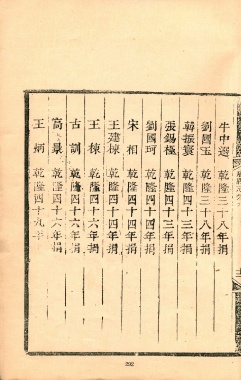 牛中選 乾隆三十八年捐
劉國玉 乾隆三十八年捐
韓振寰 乾隆四十年捐
張錫極 乾隆四十三年捐
劉國珂 乾隆四十四年捐
宋相 乾隆四十四年捐
王建棟 乾隆四十四年捐
王棟 乾隆四十六年捐
古訓 乾隆四十六年捐
高景 乾隆四十六年捐
王炳 乾隆四十九年
292